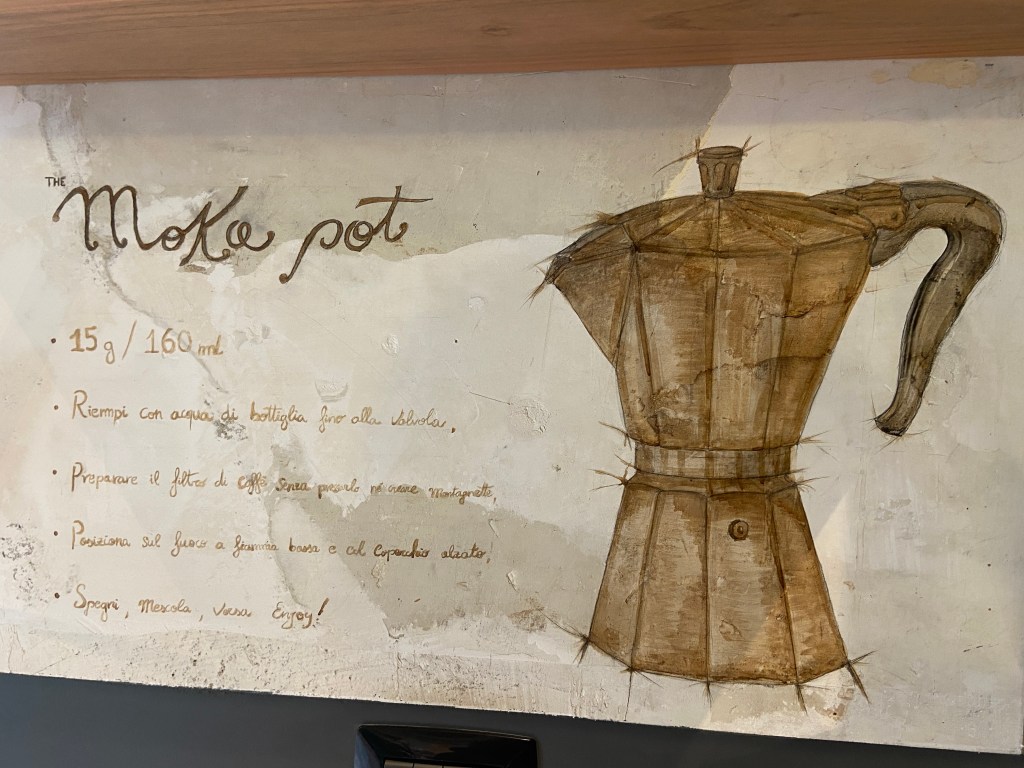 THE
Moka pot
• 15g / 160 ml
• Riempi con acqua di bottiglia fino alla valvola,
• Preparare il filtro di caffè senza pressarlo né creare montagnette,
• Posiziona sul fuoco a fiamma bassa e col coperchio alzato,
• Spegni, Mescola, versa Enjoy!